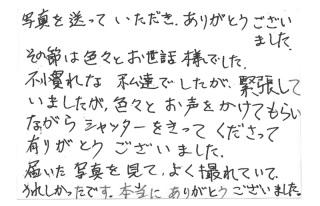 写真を送っていただき、ありがとうござい
ました。
その節は色々とお世話様でした。
不慣れな 私達でしたが、緊張して
いましたが、色々と お声をかけてもらい
ながら シャッターをきって くださって
有りがとう ございました。
届いた 写真を見て、よく撮れていて、
うれしかったです。本当に ありがとう ございました。